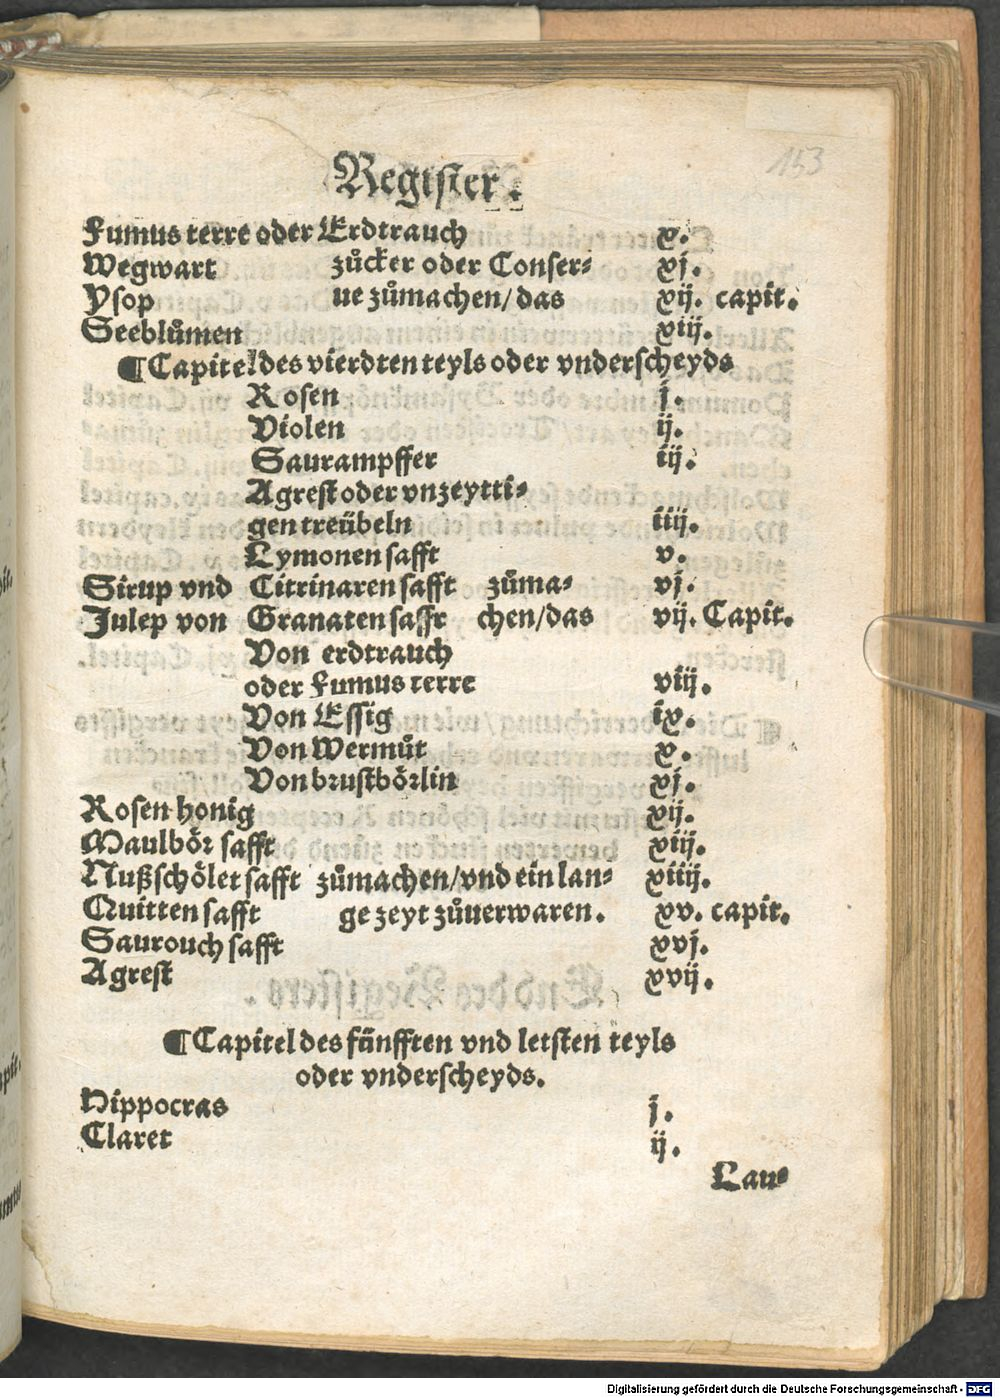 153
Register.
Fumus terre oder Erdtrauch x.
Wegwart zůcker oder Conser= xj.
Ysop ue zůmachen/ das xij. capit.
Seeblůmen xiij.
¶Capitel des vierdten teyls oder vnderscheyds
Rosen j.
Violen ij.
Saurampffer iij.
Agrest oder vnzeytti=
gen treübeln iiij.
Lymonen safft v.
Sirup vnd Citrinaren safft zůma= vj.
Julep von Granaten safft chen/das vij. Capit.
Von erdtrauch
oder Fumus terre viij.
Von Essig ix.
Von Wermůt x.
Von brustbörlin xj.
Rosen honig xij.
Maulbör safft xiij.
Nußschölet safft zůmachen/vnd ein lan= xiiij.
Quitten safft ge zeyt zůuerwaren. xv. capit.
Saurouch safft xvj.
Agrest xvij.
¶Capitel des fünfften vnd letsten teyls
oder vnderscheyds.
Hippocras j.
Claret ij.
Lau=
Digitalisierung gefördert durch die Deutsche Forschungsgemeinschaft - DFG